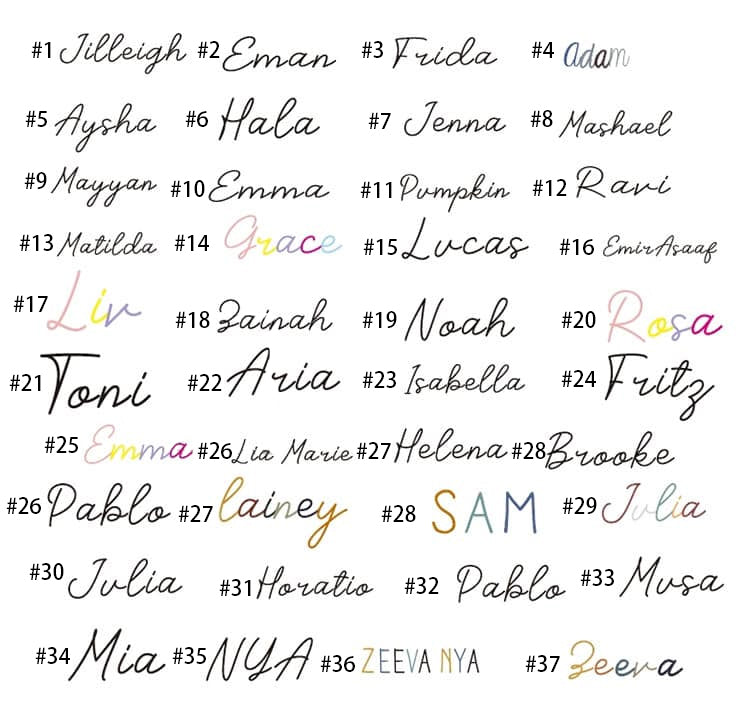 #1 Jilleigh #2 Eman #3 Frida #4 adam
#5 Aysha #6 Hala #7 Jenna #8 Mashael
#9 Mayyan #10 Emma #11 Pumpkin #12 Ravi
#13 Matilda #14 Grace #15 Lucas #16 EmirAsaaf
#17 Liv #18 Zainah #19 Noah #20 Rosa
#21 Toni #22 Aria #23 Isabella #24 Fritz
#25 Emma #26 Lia Marie #27 Helena #28 Brooke
#26 Pablo #27 lainey #28 SAM #29 Julia
#30 Julia #31 Horatio #32 Pablo #33 Musa
#34 Mia #35 NYA #36 ZEEVA NYA #37 Zeeva